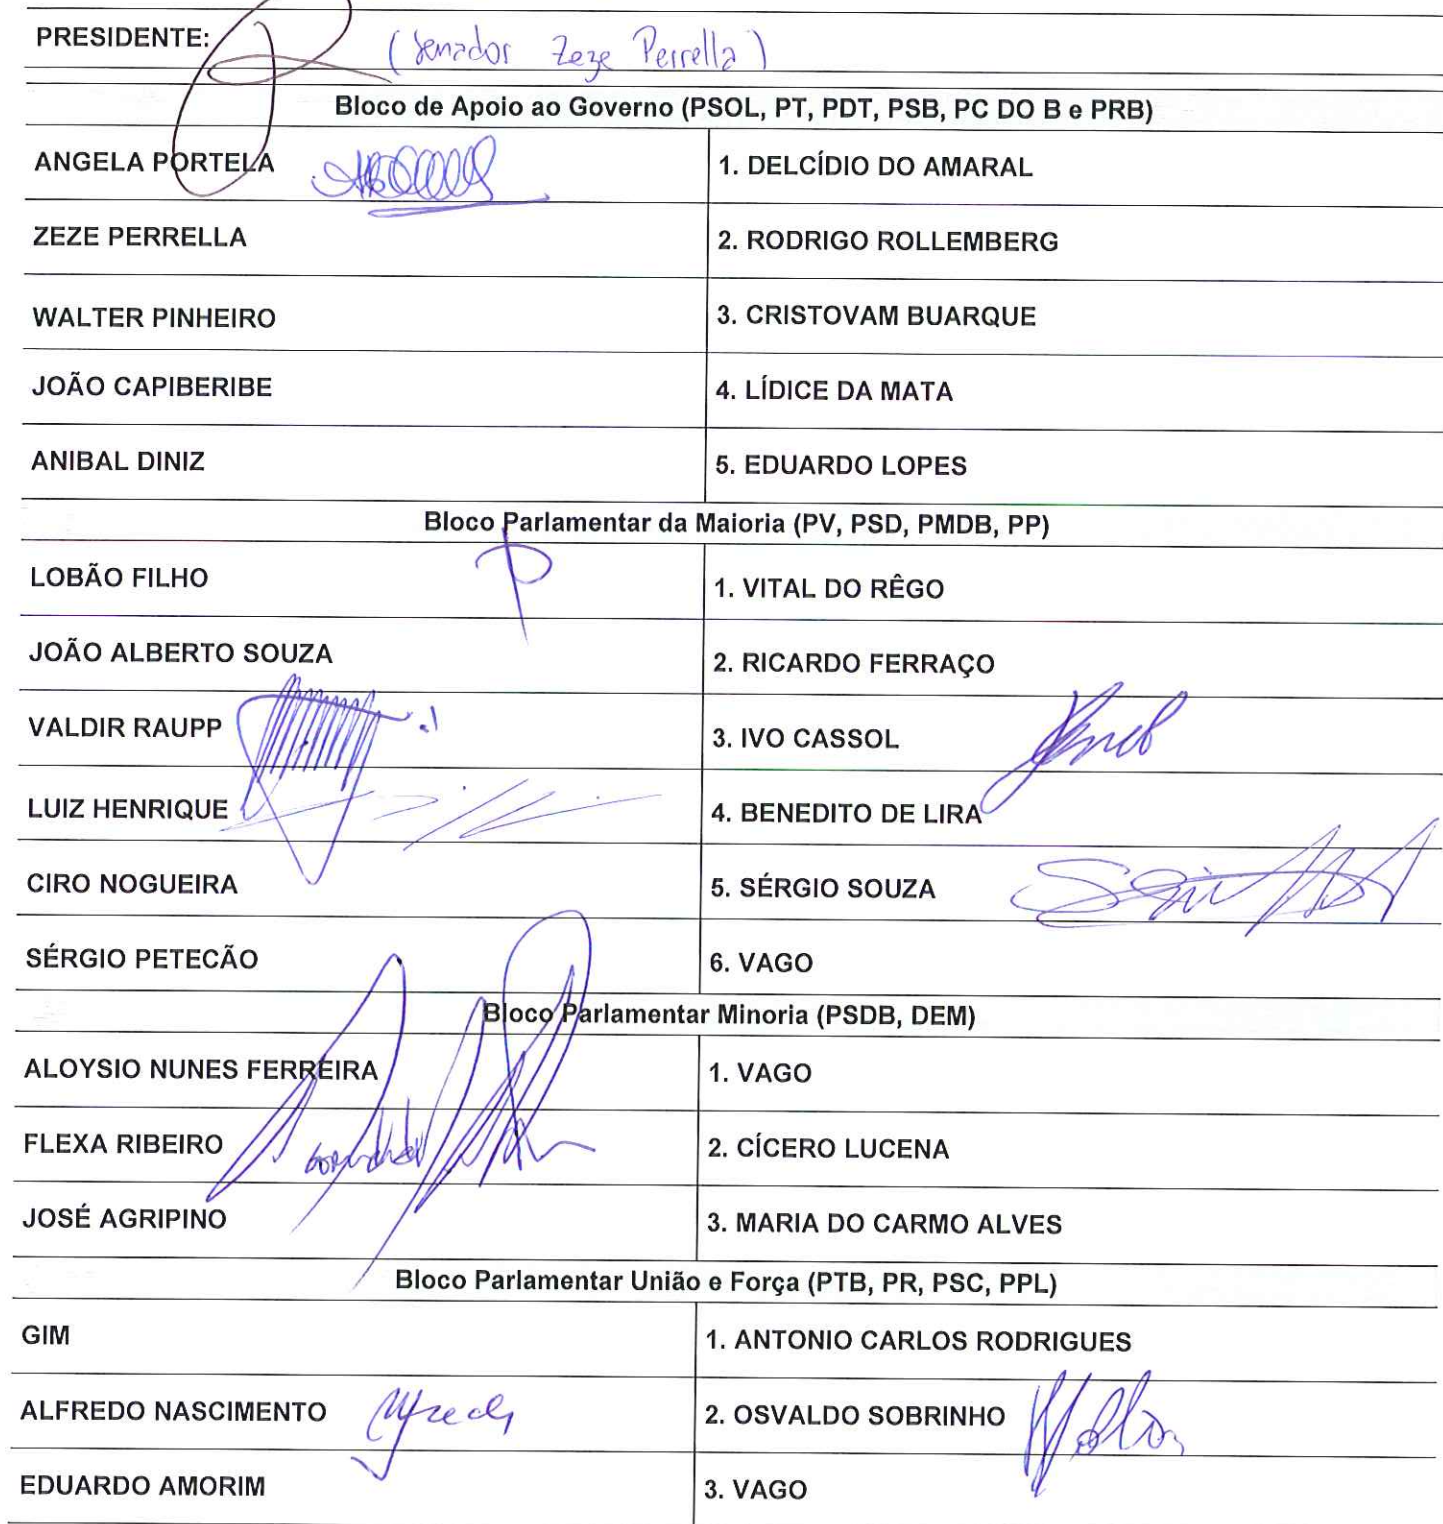 PRESIDENTE: (Senador Zeze Perrella)
Bloco de Apoio ao Governo (PSOL, PT, PDT, PSB, PC DO B e PRB)
ANGELA PORTELA 1. DELCÍDIO DO AMARAL
ZEZE PERRELLA 2. RODRIGO ROLLEMBERG
WALTER PINHEIRO 3. CRISTOVAM BUARQUE
JOÃO CAPIBERIBE 4. LÍDICE DA MATA
ANIBAL DINIZ 5. EDUARDO LOPES
Bloco Parlamentar da Maioria (PV, PSD, PMDB, PP)
LOBÃO FILHO 1. VITAL DO RÊGO
JOÃO ALBERTO SOUZA 2. RICARDO FERRAÇO
VALDIR RAUPP 3. IVO CASSOL
LUIZ HENRIQUE 4. BENEDITO DE LIRA
CIRO NOGUEIRA 5. SÉRGIO SOUZA
SÉRGIO PETECÃO 6. VAGO
Bloco Parlamentar Minoria (PSDB, DEM)
ALOYSIO NUNES FERREIRA 1. VAGO
FLEXA RIBEIRO 2. CÍCERO LUCENA
JOSÉ AGRIPINO 3. MARIA DO CARMO ALVES
Bloco Parlamentar União e Força (PTB, PR, PSC, PPL)
GIM 1. ANTONIO CARLOS RODRIGUES
ALFREDO NASCIMENTO 2. OSVALDO SOBRINHO
EDUARDO AMORIM 3. VAGO